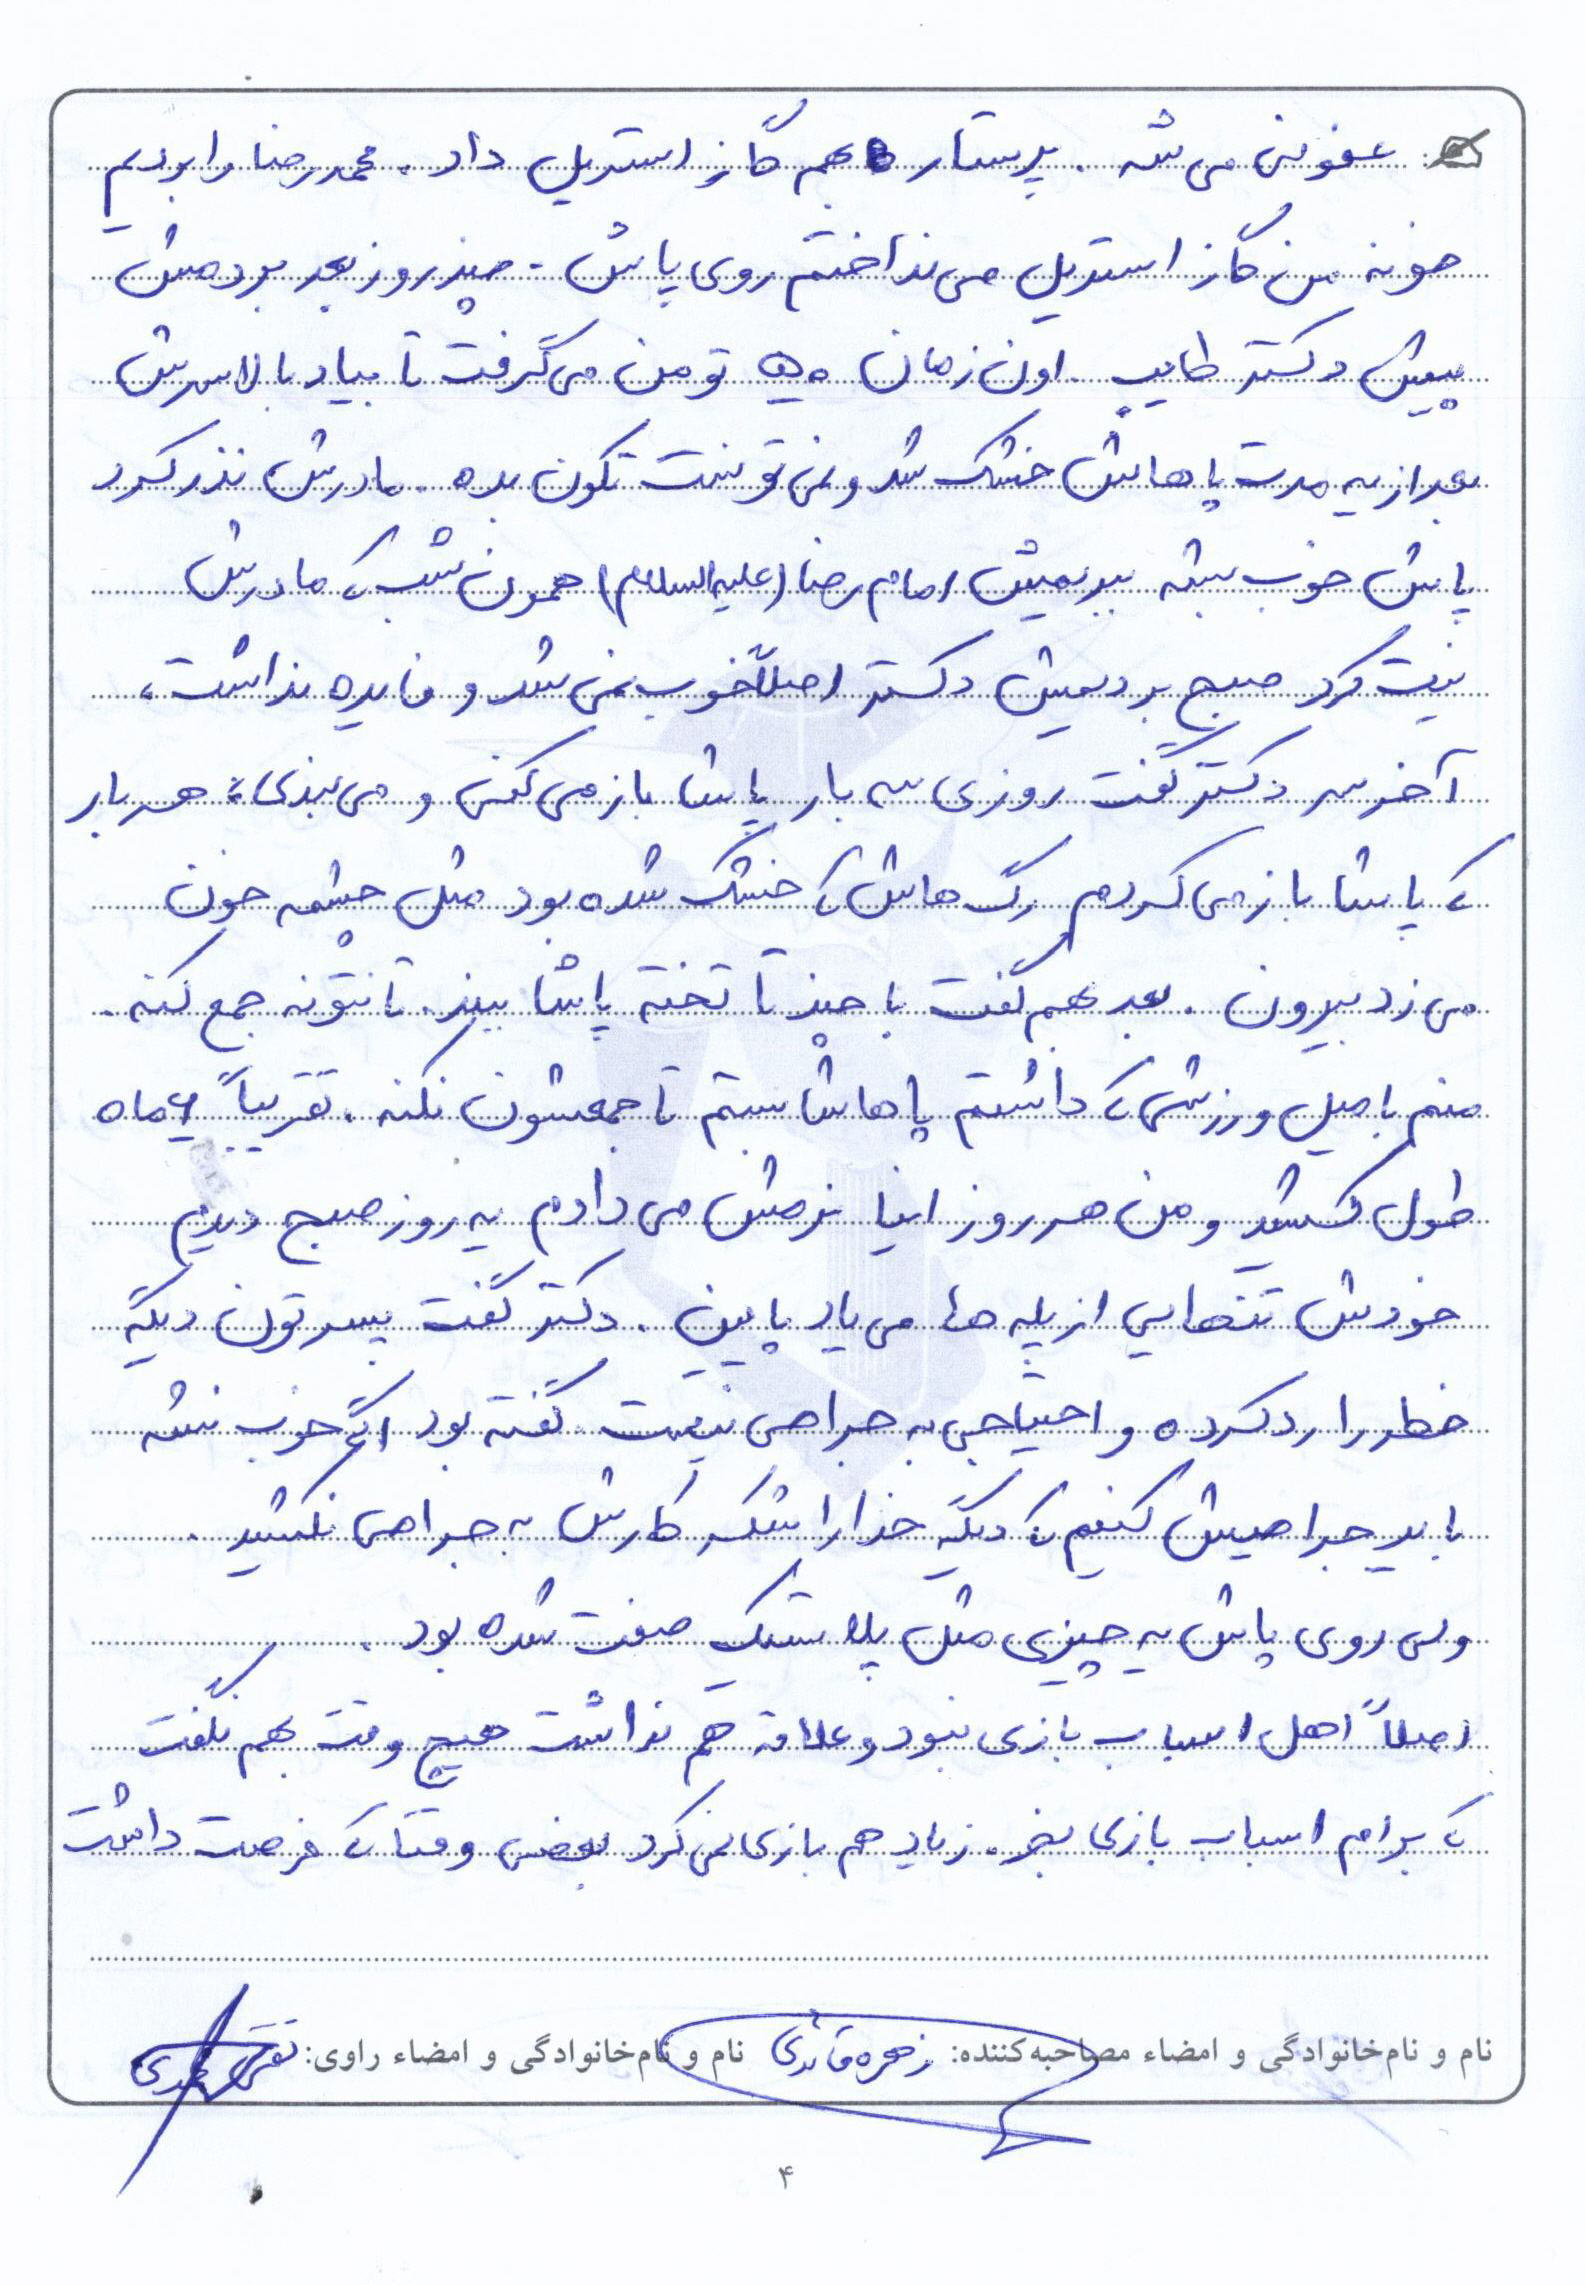 عفونی می‌شه . پرستار بهم گاز استریل داد . محمدرضا را بردیم
خونه من گاز استریل می‌نداختم روی پاش . چند روز بعد بردمش
پیش دکتر طایب . اون زمان ۵۰ تومن می‌گرفت تا بیاد بالا سرش
بعد از یه مدت پاهاش خشک شد و نمی‌تونست تکون بده . مادرش نذر کرد
پاش خوب بشه ببریمش امام رضا (علیه السلام) همون شب که مادرش
نیت کرد صبح بردیمش دکتر اصلاً خوب نمی‌شد و فایده نداشت ،
آخر سر دکتر گفت روزی سه بار پاشا باز می‌کنی و می‌بندی ؛ هر بار
که پاشا باز می‌کردم رگ هاش که خشک شده بود مثل چشمه خون
می‌زد بیرون . بعد بهم گفت با چند تا تخته پاشا ببند . تا نتونه جمع کنه .
منم با میل ورزشی که داشتم پاهاشا بستم تا جمعشون نکنه . تقریباً ۶ ماه
طول کشید و من هر روز اینا نرمش می‌دادم یه روز صبح دیدم
خودش تنهایی از پله ها می‌یاد پایین . دکتر گفت پسرتون دیگه
خطر را رد کرده و احتیاجی به جراحی نیست . گفته بود اگه خوب نشه
باید جراحیش کنیم که دیگه خدا را شکر کارش به جراحی نکشید .
ولی روی پاش یه چیزی مثل پلاستیک صفت شده بود .
اصلاً اهل اسباب بازی نبود و علاقه هم نداشت هیچ وقت بهم نگفت
که برام اسباب بازی بخر . زیاد هم بازی نمی‌کرد بعضی وقتا که فرصت داشت
نام و نام‌خانوادگی و امضاء مصاحبه‌کننده: زهره قائدی نام و نام‌خانوادگی و امضاء راوی:
۴